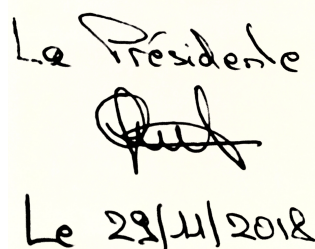 La Présidente
Le 29/11/2018